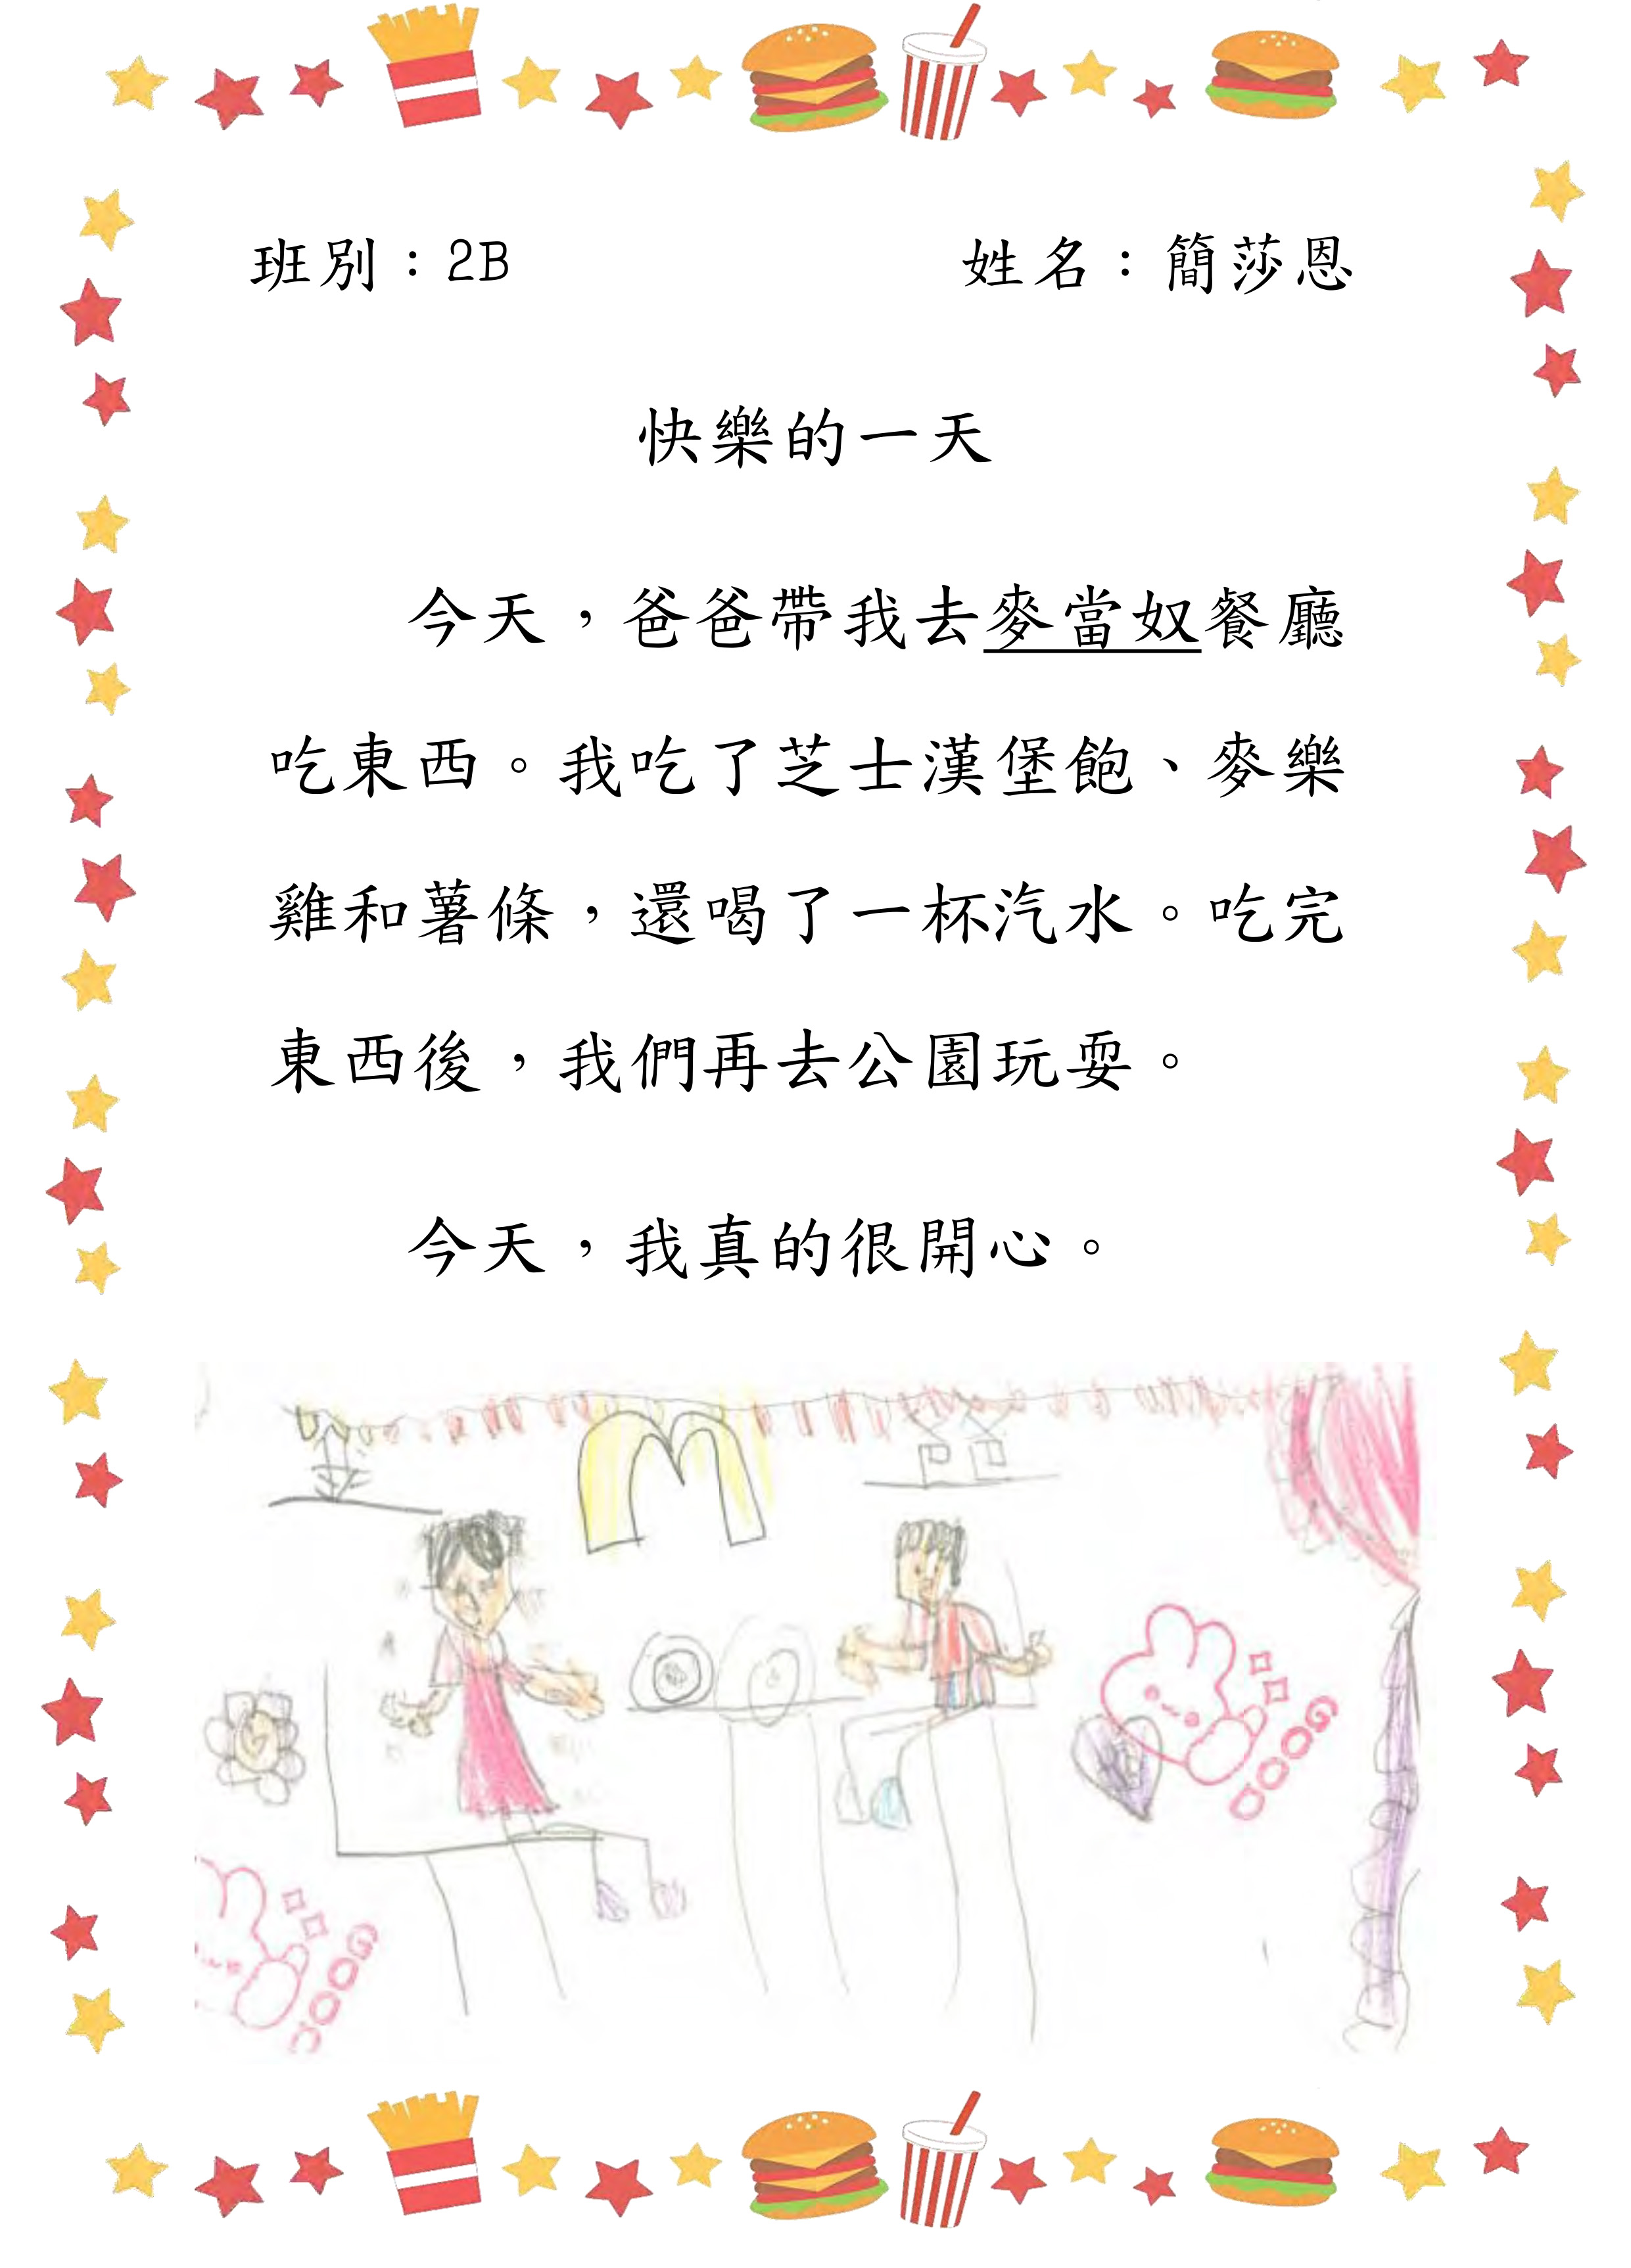 班別：2B 姓名：簡莎恩
快樂的一天
今天，爸爸帶我去麥當奴餐廳
吃東西。我吃了芝士漢堡飽、麥樂
雞和薯條，還喝了一杯汽水。吃完
東西後，我們再去公園玩耍。
今天，我真的很開心。
M
GOOD
GOOD